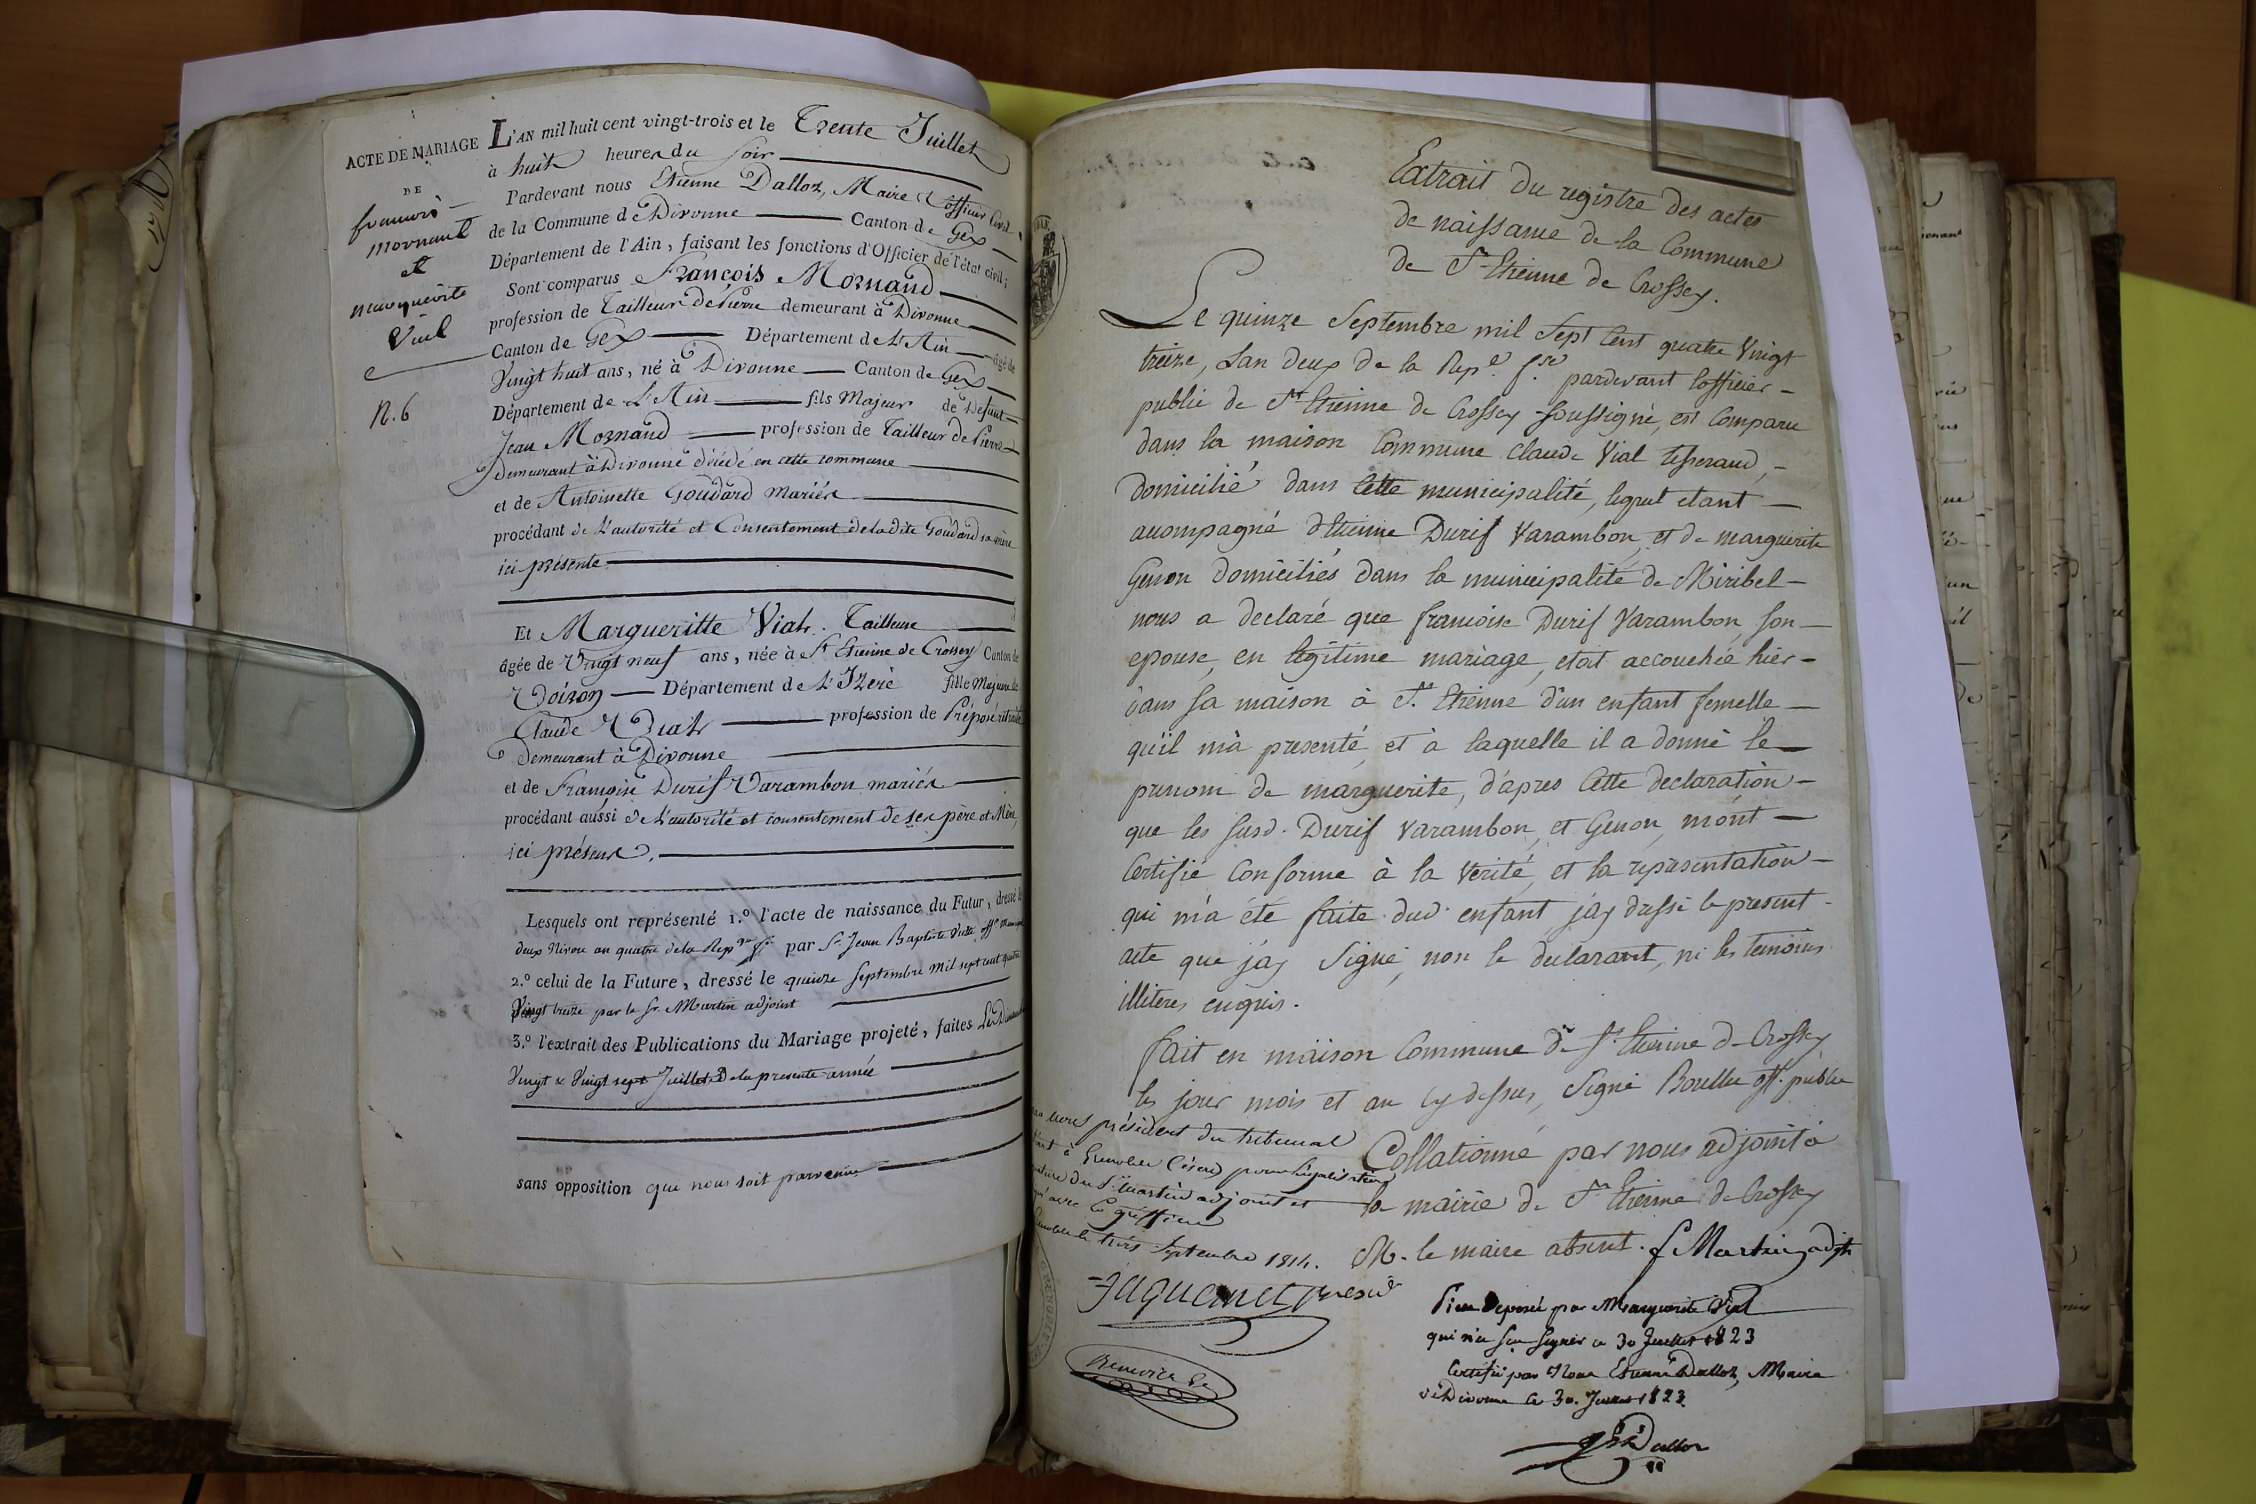 ACTE DE MARIAGE
DE
francois
mornant
et
marguerite
Vial
N. 6
L'AN mil huit cent vingt-trois et le Trente Juillet
à huit heures du soir
Pardevant nous Etienne Dalloz, Maire et officier Civil
de la Commune de Divonne Canton de Gex
Département de l'Ain, faisant les fonctions d'Officier de l'état civil;
Sont comparus François Mornand
profession de Tailleur de Pierre demeurant à Divonne
Canton de Gex Département de L'Ain âgé de
Vingt huit ans, né à Divonne Canton de Gex
Département de L'Ain fils Majeur de Defunt
Jean Mornand profession de Tailleur de Pierre
demeurant à Divonne décédé en cette commune
et de Antoinette Goudard mariés
procédant de L'autorité et Consentement de la dite Goudard sa mère
ici présente
Et Margueritte Vial. Tailleuse
âgée de Vingt neuf ans, née à St Etienne de Crossey Canton de
Voiron Département de L'Izère fille Majeure de
Claude Vial profession de Préposé retraité
demeurant à Divonne
et de Françoise Durif Varambon mariés
procédant aussi de L'autorité et consentement de ses père et Mère,
ici présens.
Lesquels ont représenté 1.º l'acte de naissance du Futur, dressé le
deux Nivose an quatre de la Repque fse par Sr Jean Baptiste
2.º celui de la Future, dressé le quinze Septembre mil sept cent quatre
Vingt treize par le Sr. Martin adjoint
3.º l'extrait des Publications du Mariage projeté, faites Les Dimanches
Vingt & Vingt sept Juillet De la presente année
sans opposition que nous soit parvenue
Extrait du registre des actes
de naissance de la Commune
de St Etienne de Crossey.
Le quinze Septembre mil Sept Cent quatre Vingt
treize, L'an deux de la Rep.e f.se pardevant l'officier
public de St Etienne de Crossey soussigné, est Comparu
dans la maison Commune Claude Vial tisserand,
domicilié dans Cette municipalité, lequel etant
accompagné d'Etienne Durif Varambon, et de marguerite
Genon domiciliés dans la municipalité de Miribel
nous a declaré que francoise Durif Varambon, son
epouse, en légitime mariage, etoit accouchée hier
dans sa maison à St. Etienne d'un enfant femelle
qu'il m'a presenté, et à laquelle il a donné le
prenom de marguerite, d'apres Cette declaration
que les susd. Durif varambon, et Genon, m'ont
Certifié Conforme à la Verité, et la representation
qui m'a été faite dud. enfant j'ay dressé le present
acte que j'ay Signé, non le declarant, ni les temoins
illiteres enquis.
fait en maison Commune de St. Etienne de Crossey
les jour mois et an cy dessus, Signé off. public
Collationné par nous adjoint à
la mairie de St. Etienne de Crossey
M. le maire absent. f Martin adjt
président du tribunal
à Grenoble (isère) pour légalisation
du Sr. martin adjoint et
avec le greffier
Grenoble le trois Septembre 1814.
Jaquemet presidt
Piece deposée par Marguerite Vial
qui n'a Scu Signer ce 30 Juillet 1823
Certifié par Nous Etienne Dalloz, Maire
de Divonne le 30. Juillet 1823.
Dalloz